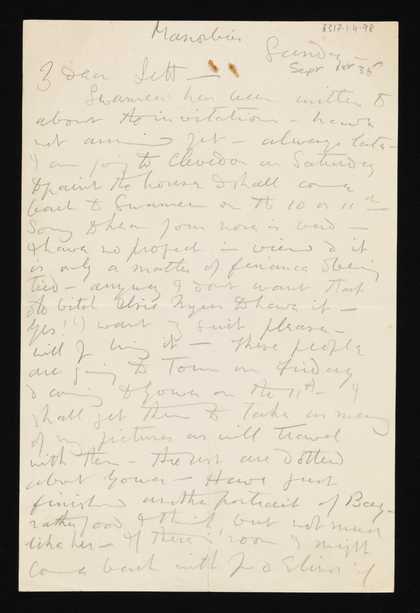 8317.1.4.98
Manorbier
Sunday
Sept 1st 35
Dear Lett —
Swansea has been written to
about the invitations — haven't
not arrived yet — always late —
I am going to Clevedon on Saturday
to paint the house & shall come
back to Swansea on the 10 or 11th —
Sorry to hear your nose is bad —
I have no project in view & it
is only a matter of finance & being
tied — anyway I don't want that
old bitch to have it —
Yes! I want suit please —
will you bring it — These people
are going to Town on Friday
& coming to Gower on the 11th — I
shall get them to take as many
of my pictures as will travel
with them — the rest are dotted
about Gower — Have just
finished another portrait of
rather good I think but not much
like her — If there's room I might
come back with you &